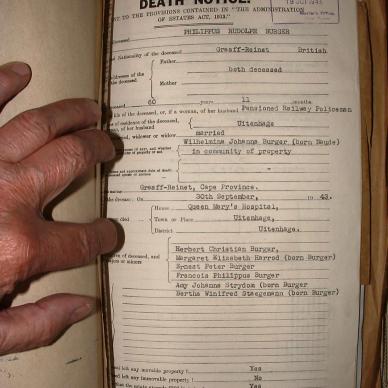 DEATH NOTICE.
NT TO THE PROVISIONS CONTAINED IN "THE ADMINISTRATION
OF ESTATES ACT, 1913."
deceased PHILIPPUS RUDOLPH BURGER
Nationality of the deceased Graaff-Reinet British
Father
addresses of the both deceased
deceased
Mother
deceased 60 years 11 months
life of the deceased, or, if a woman, of her husband Pensioned Railway Policeman
of residence of the deceased Uitenhage
of her husband
widower or widow married
Wilhelmina Johanna Burger (born Naude)
in community of property
Graaff-Reinet, Cape Province.
30th September, 19 43.
House Queen Mary's Hospital,
died Town or Place Uitenhage,
District Uitenhage.
Herbert Christian Burger,
Margaret Elizabeth Harrod (born Burger)
of deceased, and Ernest Peter Burger
majors or minors Francois Philippus Burger
Amy Johanna Strydom (born Burger
Bertha Winifred Stegemann (born Burger)
left any movable property? Yes
left any immovable property? No
Yes